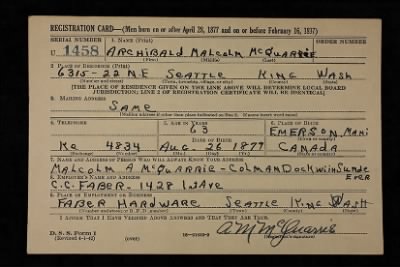 REGISTRATION CARD—(Men born on or after April 28, 1877 and on or before February 16, 1897)
SERIAL NUMBER 1. NAME (Print) ORDER NUMBER
U 1458 ARCHIBALD MALCOLM MCQUARRIE
2. PLACE OF RESIDENCE (Print)
6315-22 N.E SEATTLE KING WASH
(Number and street) (Town, township, village, or city) (County) (State)
[THE PLACE OF RESIDENCE GIVEN ON THE LINE ABOVE WILL DETERMINE LOCAL BOARD
JURISDICTION; LINE 2 OF REGISTRATION CERTIFICATE WILL BE IDENTICAL]
3. MAILING ADDRESS
SAME
[Mailing address if other than place indicated on line 2. If same insert word same]
4. TELEPHONE 5. AGE IN YEARS 6. PLACE OF BIRTH
63 EMERSON, MANI
DATE OF BIRTH
Ke 4834 AUG 26 1877 CANADA
(Exchange) (Number) (Mo.) (Day) (Yr.) (State or country)
7. NAME AND ADDRESS OF PERSON WHO WILL ALWAYS KNOW YOUR ADDRESS
MALCOLM A MCQUARRIE - COLMAN DOCK
8. EMPLOYER'S NAME AND ADDRESS
C.C. FABER - 1428 1ST AVE
9. PLACE OF EMPLOYMENT OR BUSINESS
FABER HARDWARE SEATTLE KING WASH
(Number and street or R. F. D. number) (Town) (County) (State)
I AFFIRM THAT I HAVE VERIFIED ABOVE ANSWERS AND THAT THEY ARE TRUE.
D. S. S. Form 1
(Revised 4-1-42) (over) A M McQuarrie